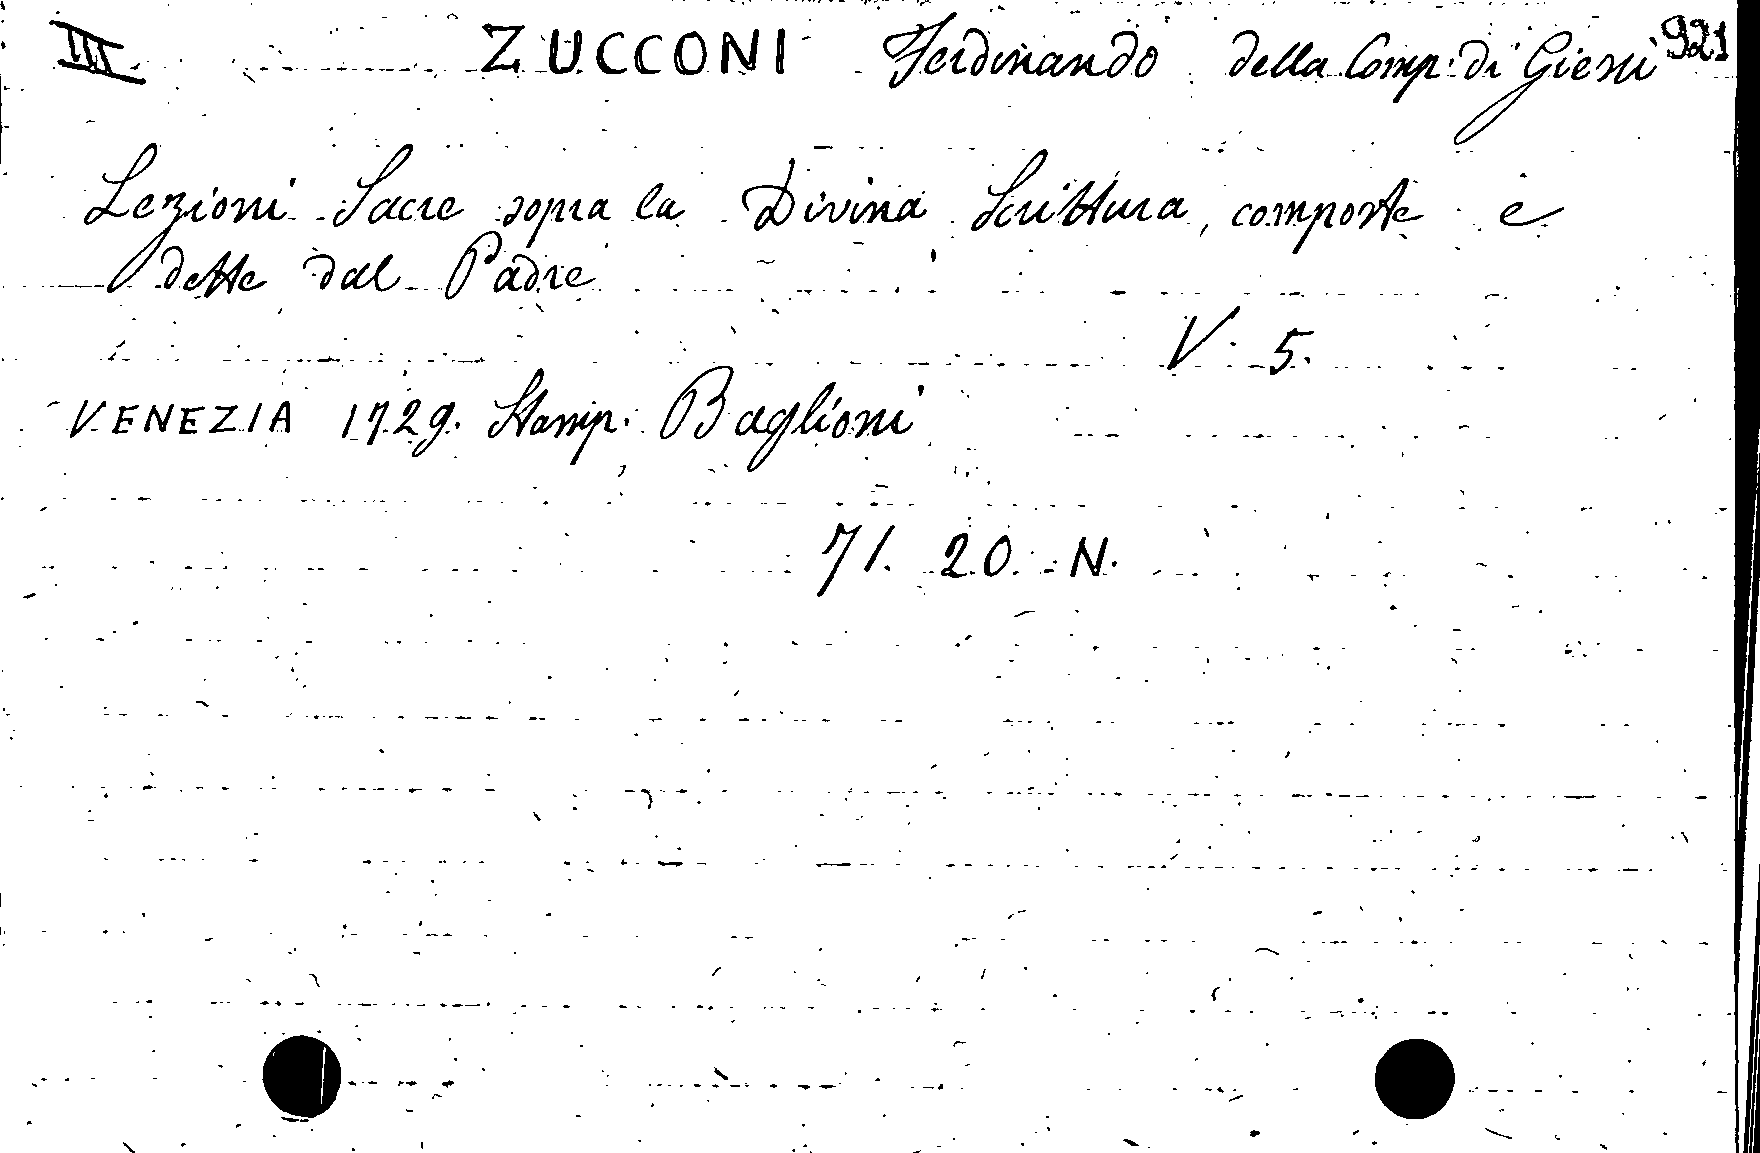 III ZUCCONI Ferdinando della Comp. di Giesù 921
Lezioni Sacre sopra la Divina Scrittura, composte e
dette dal Padre
V. 5.
VENEZIA 1729. Stamp. Baglioni
71. 20. N.